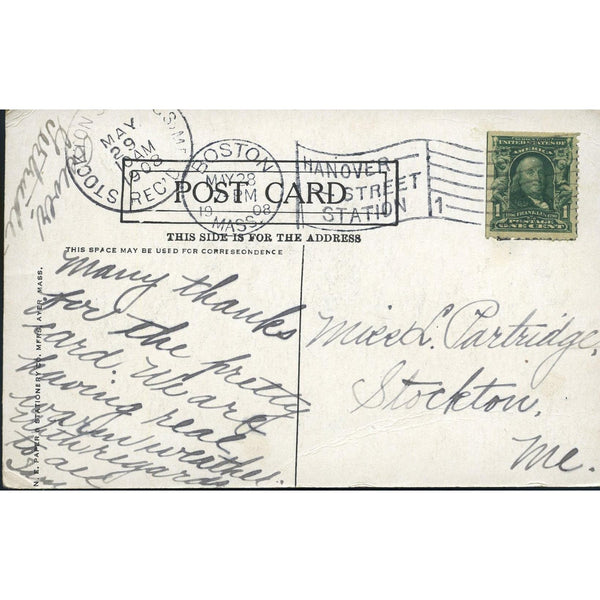 STOCKTON
MAY
29
AM
1908
REC'D
BOSTON
MAY 28
PM
19 08
MASS.
HANOVER
STREET
STATION
1
UNITED STATES OF
AMERICA
1 FRANKLIN 1
POSTAGE
ONE CENT
POST CARD
THIS SIDE IS FOR THE ADDRESS
THIS SPACE MAY BE USED FOR CORRESPONDENCE
N. E. PAPER & STATIONERY CO. MFRS. AYER, MASS.
Many thanks
for the pretty
card. We are
having real
warm weather.
with regards
to all
Miss L. Partridge,
Stockton,
Me.